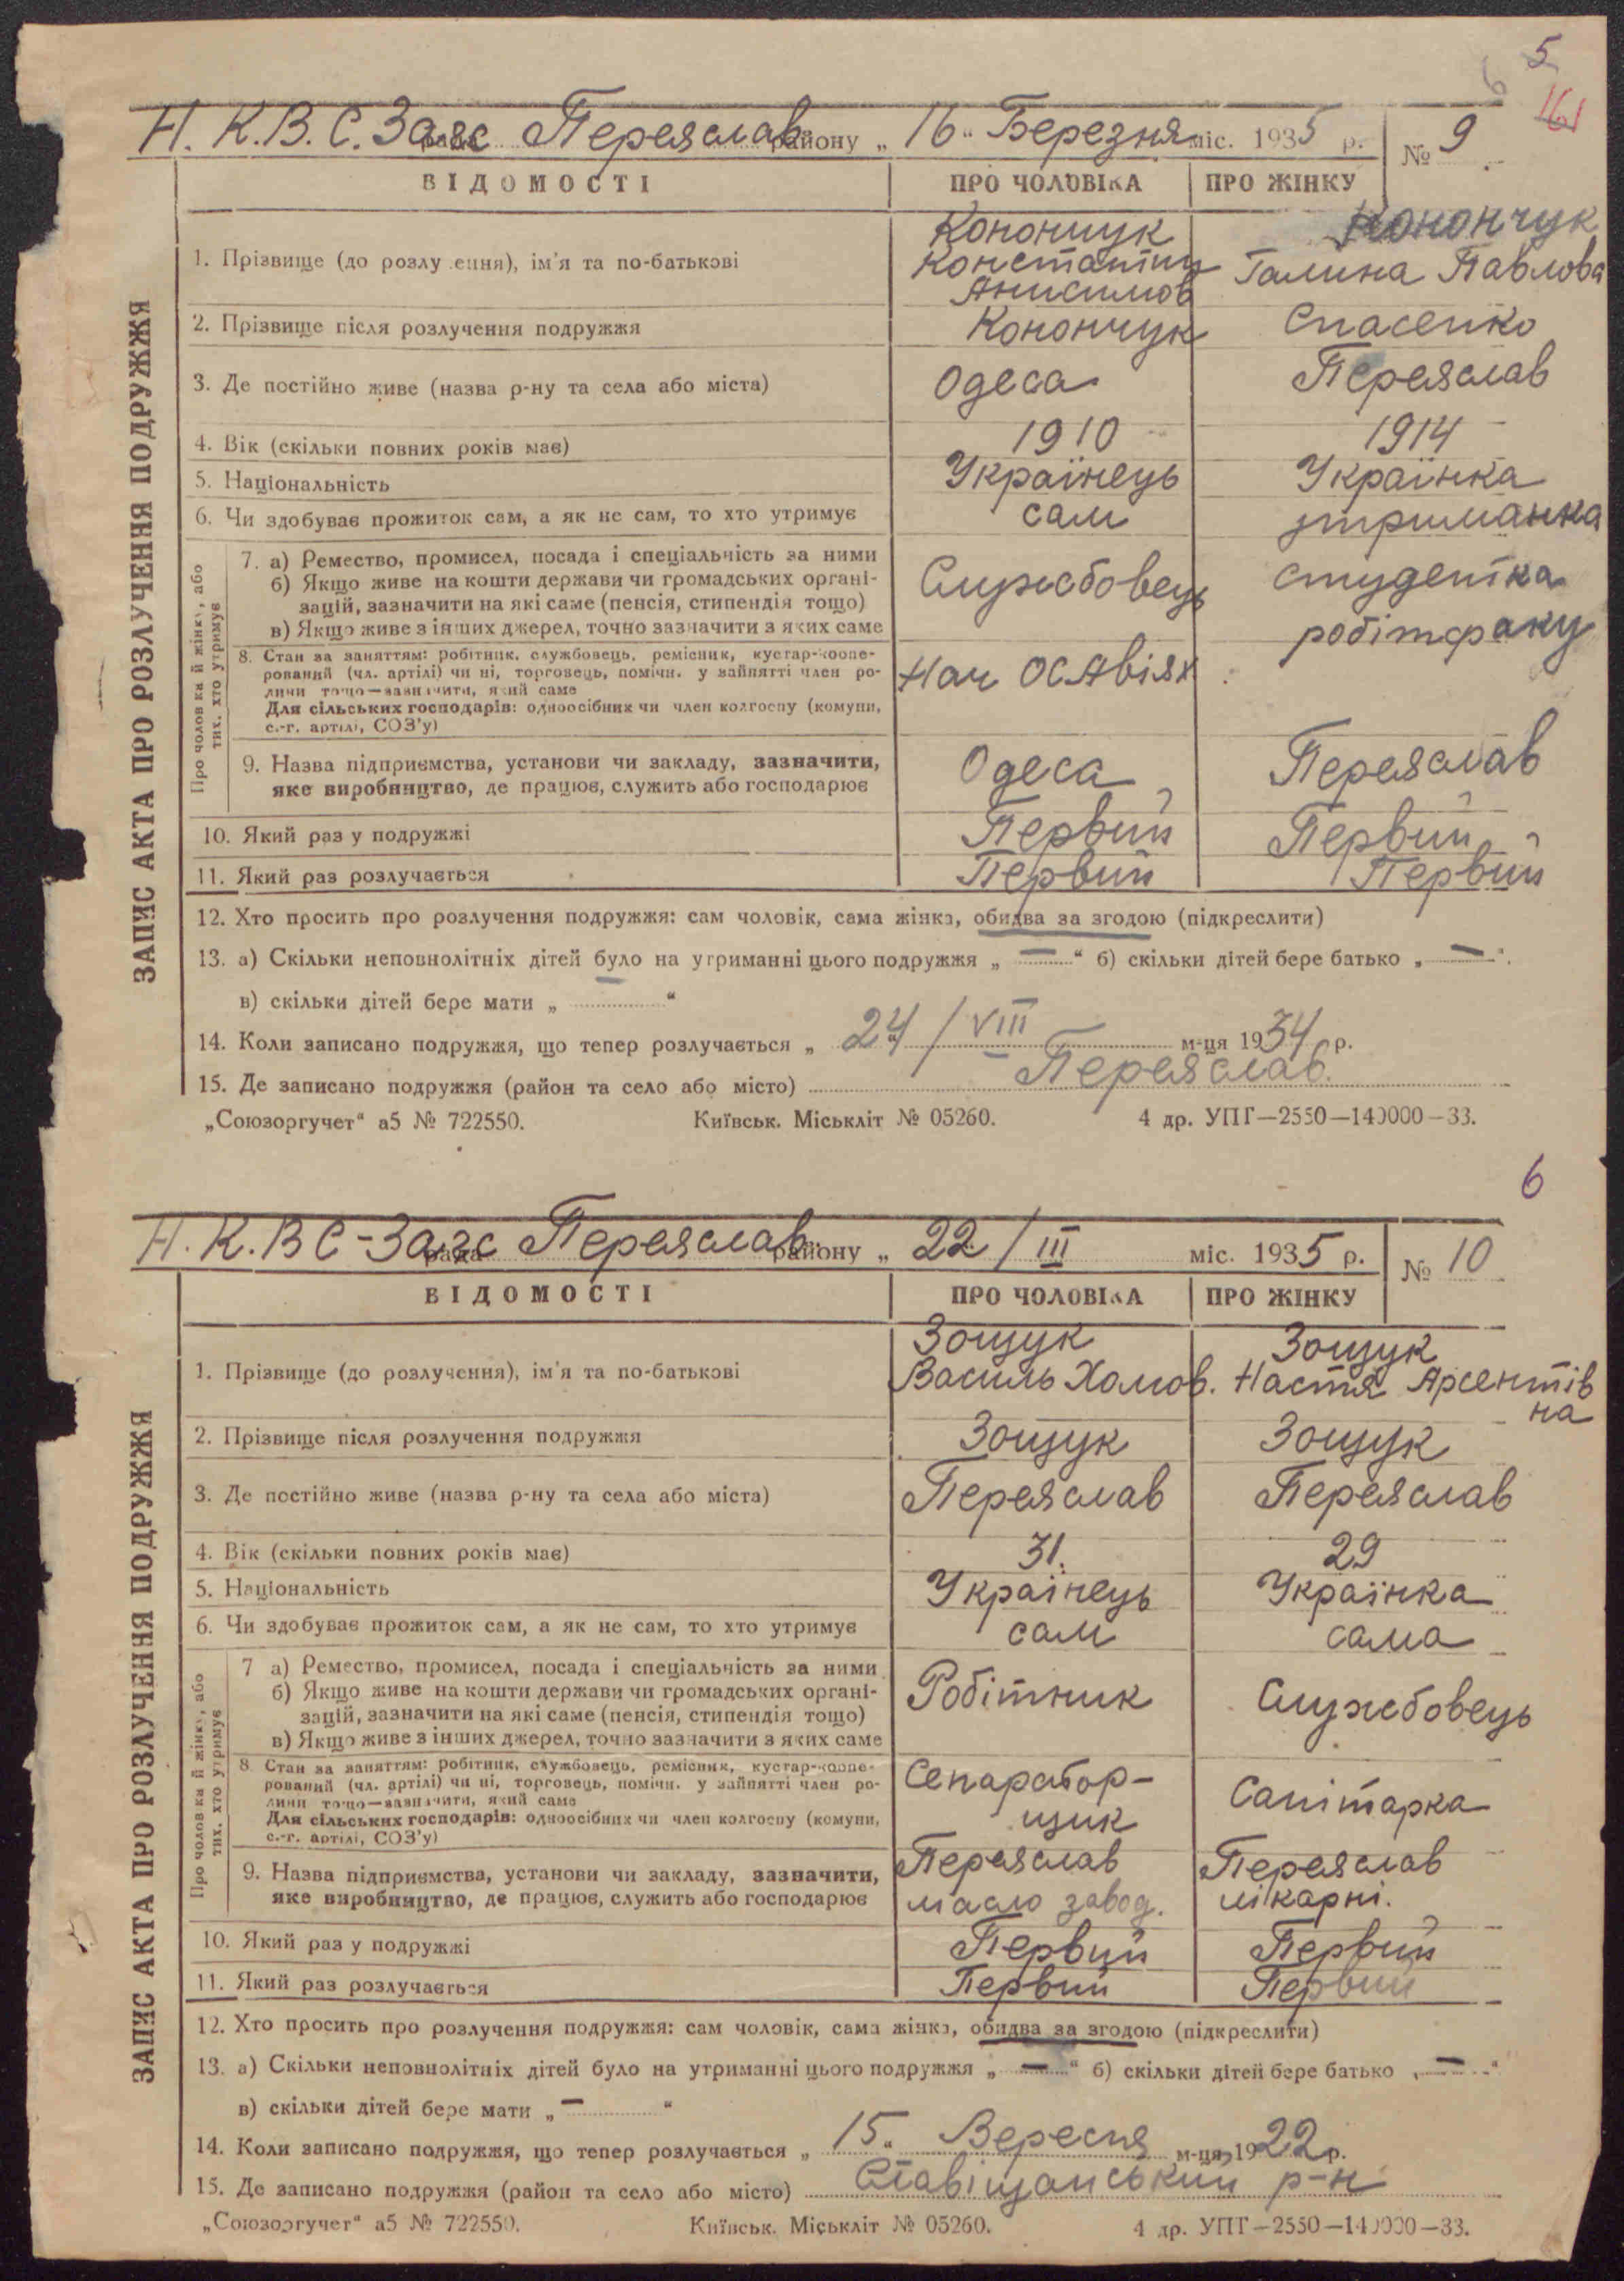 5
6
161
Н. К. В. С. Загс Переяслав району „16“ Березня міс. 1935 р. № 9
ВІДОМОСТІ ПРО ЧОЛОВІКА ПРО ЖІНКУ
ЗАПИС АКТА ПРО РОЗЛУЧЕННЯ ПОДРУЖЖЯ
1. Прізвище (до розлучення), ім'я та по-батькові
Конончук Константин Анисимов
Конончук Галина Павлова
2. Прізвище після розлучення подружжя Конончук Спасенко
3. Де постійно живе (назва р-ну та села або міста) Одеса Переяслав
4. Вік (скільки повних років має) 1910 1914
5. Національність Українець Українка
6. Чи здобуває прожиток сам, а як не сам, то хто утримує сам утриманка
Про чоловіка й жінку, або тих, хто утримує
7. а) Ремество, промисел, посада і спеціальність за ними
б) Якщо живе на кошти держави чи громадських органі-
зацій, зазначити на які саме (пенсія, стипендія тощо)
в) Якщо живе з інших джерел, точно зазначити з яких саме
Службовець
студентка робітфаку
8. Стан за заняттям: робітник, службовець, ремісник, кустар-коопе-
рований (чл. артілі) чи ні, торговець, поміч. у занятті член ро-
дини тощо—зазначити, який саме
Для сільських господарів: одноосібник чи член колгоспу (комуни,
с.-г. артілі, СОЗ'у)
Нач ОСАвіях
9. Назва підприємства, установи чи закладу, зазначити,
яке виробництво, де працює, служить або господарює
Одеса Переяслав
10. Який раз у подружжі Первий Первий
11. Який раз розлучається Первий Первий
12. Хто просить про розлучення подружжя: сам чоловік, сама жінка, обидва за згодою (підкреслити)
13. а) Скільки неповнолітніх дітей було на утриманні цього подружжя „ — “ б) скільки дітей бере батько „ — “.
в) скільки дітей бере мати „ “
14. Коли записано подружжя, що тепер розлучається „ 24 / VIII м-ця 1934 р.
15. Де записано подружжя (район та село або місто) Переяслав.
„Союзоргучет“ а5 № 722550. Київськ. Міськліт № 05260. 4 др. УПГ—2550—140000—33.
6
Н. К. В С - Загс Переяслав району „ 22 / III міс. 1935 р. № 10
ВІДОМОСТІ ПРО ЧОЛОВІКА ПРО ЖІНКУ
ЗАПИС АКТА ПРО РОЗЛУЧЕННЯ ПОДРУЖЖЯ
1. Прізвище (до розлучення), ім'я та по-батькові
Зощук Василь Хомов.
Зощук Настя Арсентівна
2. Прізвище після розлучення подружжя Зощук Зощук
3. Де постійно живе (назва р-ну та села або міста) Переяслав Переяслав
4. Вік (скільки повних років має) 31. 29
5. Національність Українець Українка
6. Чи здобуває прожиток сам, а як не сам, то хто утримує сам сама
Про чоловіка й жінку, або тих, хто утримує
7 а) Ремество, промисел, посада і спеціальність за ними
б) Якщо живе на кошти держави чи громадських органі-
зацій, зазначити на які саме (пенсія, стипендія тощо)
в) Якщо живе з інших джерел, точно зазначити з яких саме
Робітник Службовець
8. Стан за заняттям: робітник, службовець, ремісник, кустар-коопе-
рований (чл. артілі) чи ні, торговець, поміч. у занятті член ро-
дини тощо—зазначити, який саме
Для сільських господарів: одноосібник чи член колгоспу (комуни,
с.-г. артілі, СОЗ'у)
Сепаратор-
щик
Санітарка
9. Назва підприємства, установи чи закладу, зазначити,
яке виробництво, де працює, служить або господарює
Переяслав масло завод.
Переяслав лікарні.
10. Який раз у подружжі Первий Первий
11. Який раз розлучається Первий Первий
12. Хто просить про розлучення подружжя: сам чоловік, сама жінка, обидва за згодою (підкреслити)
13. а) Скільки неповнолітніх дітей було на утриманні цього подружжя „ — “ б) скільки дітей бере батько „ — “
в) скільки дітей бере мати „ — “
14. Коли записано подружжя, що тепер розлучається „ 15 “ Вересня м-ця 1922 р.
15. Де записано подружжя (район та село або місто) Ставіщанський р-н
„Союзоргучет“ а5 № 722550. Київськ. Міськліт № 05260. 4 др. УПГ—2550—140000—33.